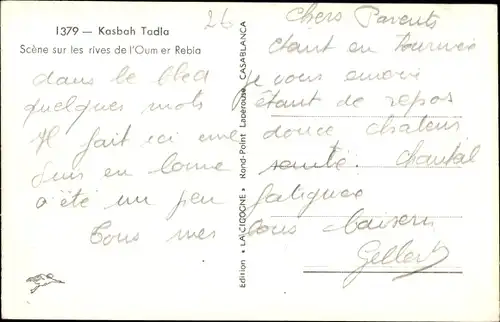 1379 — Kasbah Tadla
Scène sur les rives de l'Oum er Rebia
26
Chers Parents
étant en tournée
dans le bled je vous envoie
quelques mots étant de repos
Il fait ici une douce chaleur
suis en bonne santé. Chantal
a été un peu fatiguée
Tous mes bons baisers
Edition « LA CIGOGNE » Rond-Point Lapérouse CASABLANCA